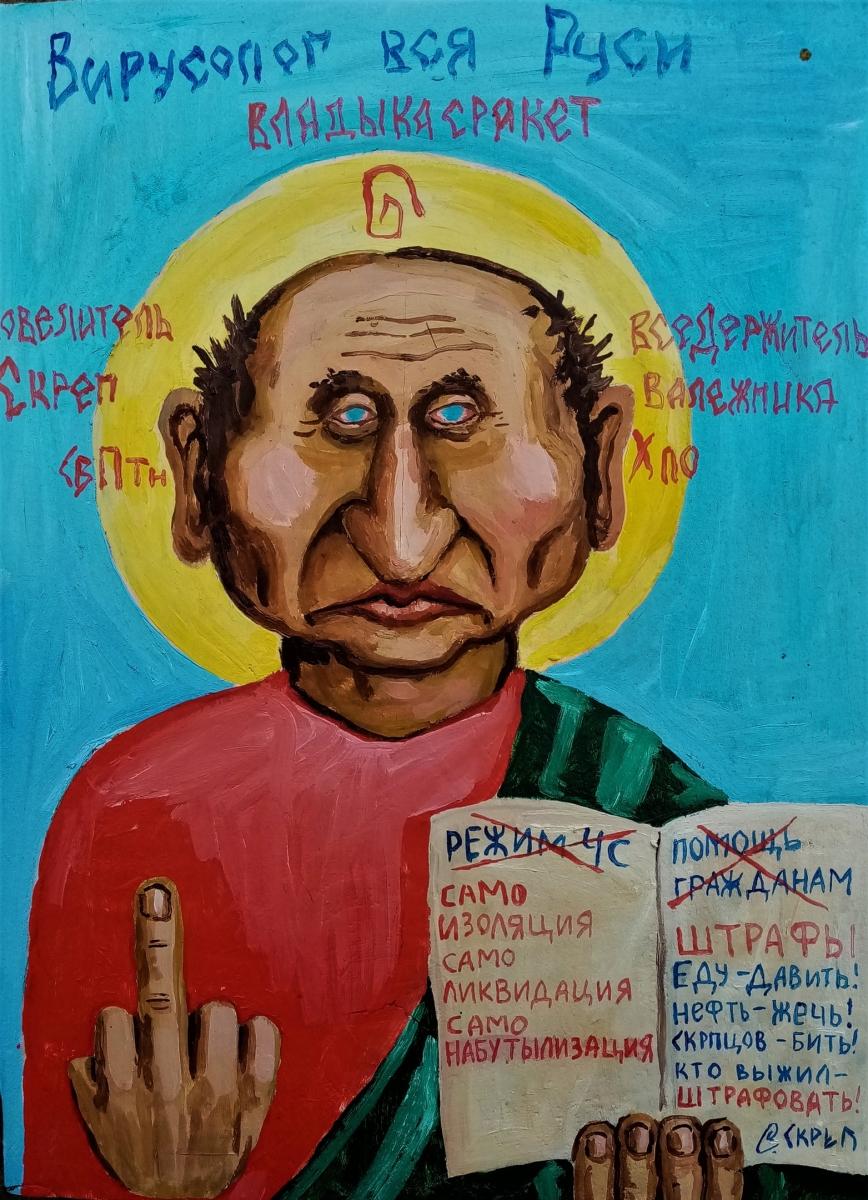 Вирусолог вся Руси
ВЛАДЫКА СРАКЕТ
ОВЕЛИТЕЛЬ
СКРЕП
СВ ПТН
ВСЕДЕРЖИТЕЛЬ
ВАЛЕЖНИКА
ХПО
РЕЖИМ ЧС
САМО
ИЗОЛЯЦИЯ
САМО
ЛИКВИДАЦИЯ
САМО
НАБУТЫЛИЗАЦИЯ
ПОМОЩЬ
ГРАЖДАНАМ
ШТРАФЫ
ЕДУ-ДАВИТЬ!
НЕФТЬ-ЖЕЧЬ!
СКРПЦОВ-БИТЬ!
КТО ВЫЖИЛ-
ШТРАФОВАТЬ!
@СКРЕП